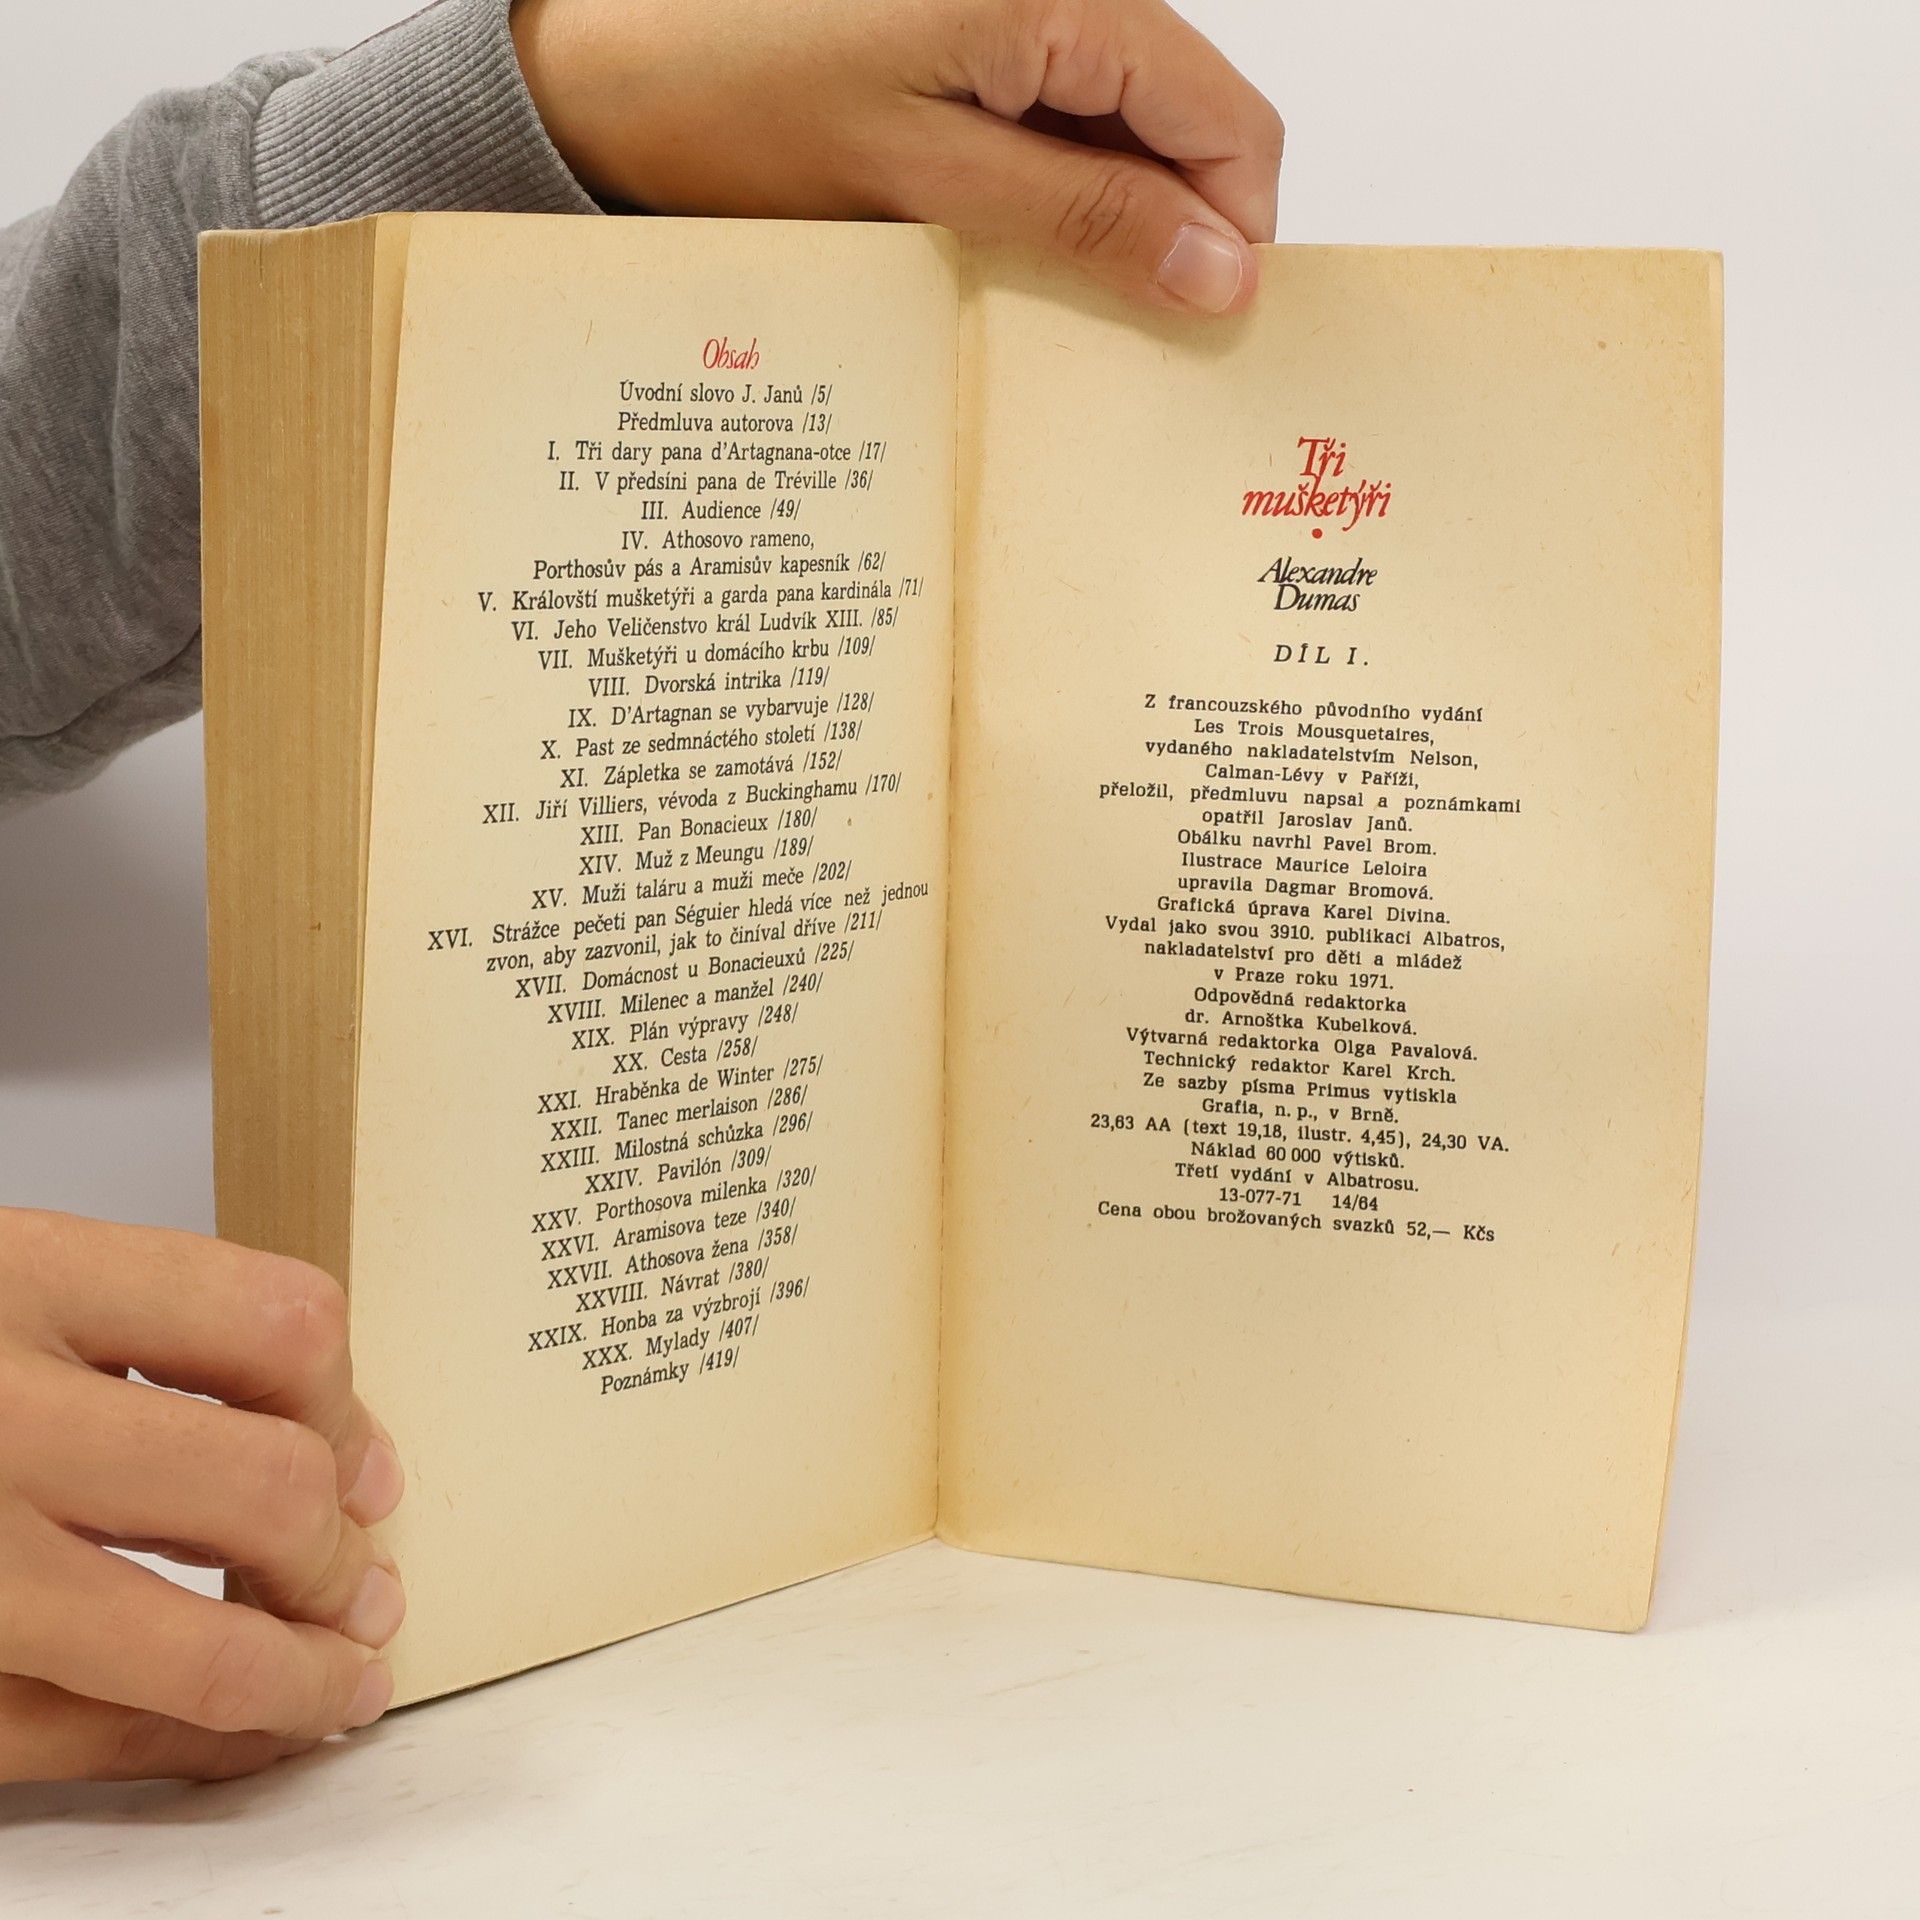 Obsah
Úvodní slovo J. Janů /5/
Předmluva autorova /13/
I. Tři dary pana d'Artagnana-otce /17/
II. V předsíni pana de Tréville /36/
III. Audience /49/
IV. Athosovo rameno,
Porthosův pás a Aramisův kapesník /62/
V. Královští mušketýři a garda pana kardinála /71/
VI. Jeho Veličenstvo král Ludvík XIII. /85/
VII. Mušketýři u domácího krbu /109/
VIII. Dvorská intrika /119/
IX. D'Artagnan se vybarvuje /128/
X. Past ze sedmnáctého století /138/
XI. Zápletka se zamotává /152/
XII. Jiří Villiers, vévoda z Buckinghamu /170/
XIII. Pan Bonacieux /180/
XIV. Muž z Meungu /189/
XV. Muži taláru a muži meče /202/
XVI. Strážce pečeti pan Séguier hledá více než jednou
zvon, aby zazvonil, jak to činíval dříve /211/
XVII. Domácnost u Bonacieuxů /225/
XVIII. Milenec a manžel /240/
XIX. Plán výpravy /248/
XX. Cesta /258/
XXI. Hraběnka de Winter /275/
XXII. Tanec merlaison /286/
XXIII. Milostná schůzka /296/
XXIV. Pavilón /309/
XXV. Porthosova milenka /320/
XXVI. Aramisova teze /340/
XXVII. Athosova žena /358/
XXVIII. Návrat /380/
XXIX. Honba za výzbrojí /396/
XXX. Mylady /407/
Poznámky /419/
Tři
mušketýři
•
Alexandre
Dumas
DÍL I.
Z francouzského původního vydání
Les Trois Mousquetaires,
vydaného nakladatelstvím Nelson,
Calman-Lévy v Paříži,
přeložil, předmluvu napsal a poznámkami
opatřil Jaroslav Janů.
Obálku navrhl Pavel Brom.
Ilustrace Maurice Leloira
upravila Dagmar Bromová.
Grafická úprava Karel Divina.
Vydal jako svou 3910. publikaci Albatros,
nakladatelství pro děti a mládež
v Praze roku 1971.
Odpovědná redaktorka
dr. Arnoštka Kubelková.
Výtvarná redaktorka Olga Pavalová.
Technický redaktor Karel Krch.
Ze sazby písma Primus vytiskla
Grafia, n. p., v Brně.
23,63 AA (text 19,18, ilustr. 4,45), 24,30 VA.
Náklad 60 000 výtisků.
Třetí vydání v Albatrosu.
13-077-71 14/64
Cena obou brožovaných svazků 52,— Kčs